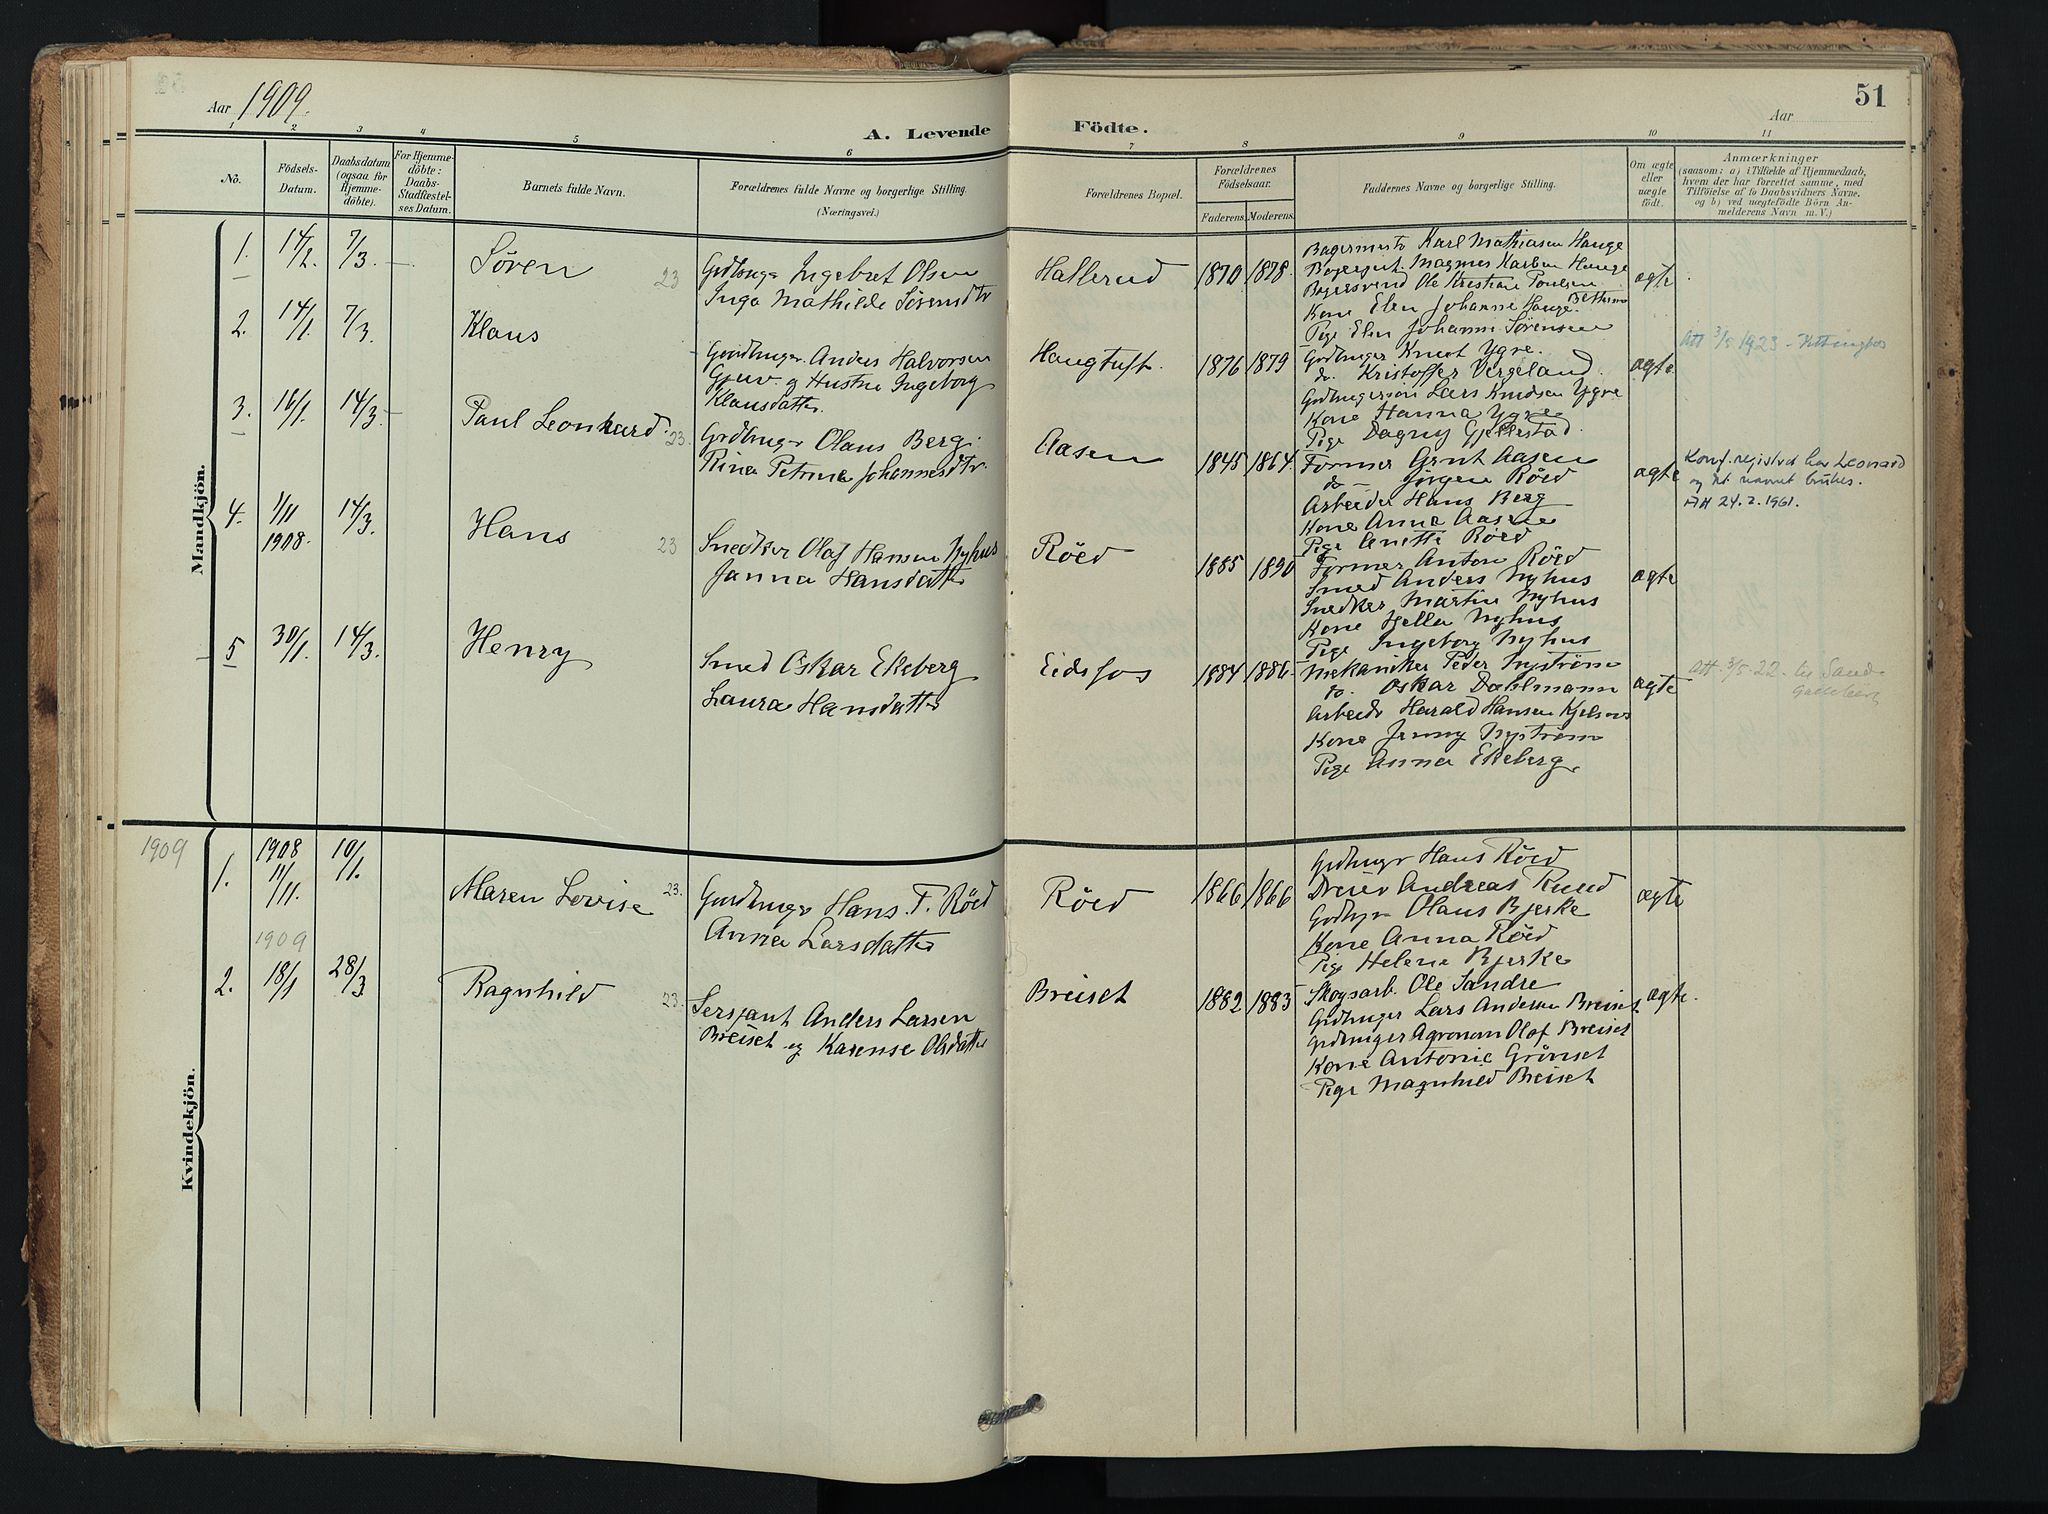 Aar 1909.
A. Levende Födte.
Aar
51
1 2 3 4 5 6 7 8 9 10 11
No.
Födsels-Datum.
Daabsdatum (ogsaa for Hjemme-döbte).
For Hjemme-döbte: Daabs-Stadfæstel-ses Datum.
Barnets fulde Navn.
Forældrenes fulde Navne og borgerlige Stilling.
(Næringsvei.)
Forældrenes Bopæl.
Forældrenes Födselsaar.
Faderens. Moderens.
Faddernes Navne og borgerlige Stilling.
Om ægte eller uægte födt.
Anmærkninger
(saasom: a) i Tilfælde af Hjemmedaab,
hvem der har forrettet samme, med
Tilföielse af to Daabsvidners Navne,
og b) ved uægtefödte Börn An-
melderens Navn m. V.)
Mandkjön.
1. 14/2. 7/3. — Søren 23
Ingebret Olsen
Inga Mathilde Sørensdtr
Hallerud 1870 1878.
Karl Mathiasen Hauge
Magnus Karben Hauge
Bagersvend Ole Kristian Poulsen
Bethum
Kone Elen Johanne Hauge.
Pige Elen Johanne Sørensen
ægte
2. 14/1. 7/3. Klaus
Gaardbruger Anders Halvorsen
Gjuv. og Hustru Ingeborg
Klausdatter.
Haugtuft. 1876 1879
Grdbruger Knut Ygre.
do. Kristoffer Vergeland.
Grdbrugersøn Lars Knudsen Ygre
Kone Hanna Ygre
Pige Dagny Gjellestad.
ægte
Att 3/5 1923
3. 16/1. 14/3 — Paul Leonhard. 23.
Grdbruger Olaus Berg.
Rina Petrine Johannesdtr.
Aasen 1845 1864.
Former Aasen
do — Jørgen Röed
Arbeider Hans Berg
Kone Anna Aasen
Pige Anette Röed
ægte
Konf. registret har Leonard
og det navnet brukes.
24.2.1961.
4. 1/11 1908. 14/3. Hans 23
Snedker Olaf Hansen Nyhus
Janna Hansdatter
Röed 1885 1890
Former Anton Röed
Smed Anders Nyhus
Snedker Martin Nyhus
Kone Hella Nyhus
Pige Ingeborg Nyhus
ægte
5 30/1. 14/3. Henry
Smed Oskar Ekeberg
Laura Hansdatter
Eidsfos 1884 1886.
Mekaniker Peder Nyström
do. Oskar Dahlmann
Arbeider Harald Hansen
Kone Jenny Nyström
Pige Anna Ekeberg.
ægte
Att. 3/5.22.
Kvindekjön.
1909
1. 1908 11/11. 10/1. Maren Lovise 23.
Gardbruger Hans T. Röed
Anna Larsdatter
Röed 1866 1866
Grdbruger Hans Röed
Dreier Andreas Ruud
Olaus Bjerke
Kone Anna Röed
Pige Helene Bjerke
ægte
1909
2. 18/1 28/3 Ragnhild 23.
Sersjant Anders Larsen
Breiset og Karense Olsdatter
Breiset 1882 1883
Skogsarb. Ole Sandre
Grdbruger Lars Andersen Breiset
Grdbruger Agronom Olaf Breiset
Kone Antonie Grönset
Pige Magnhild Breiset
ægte.